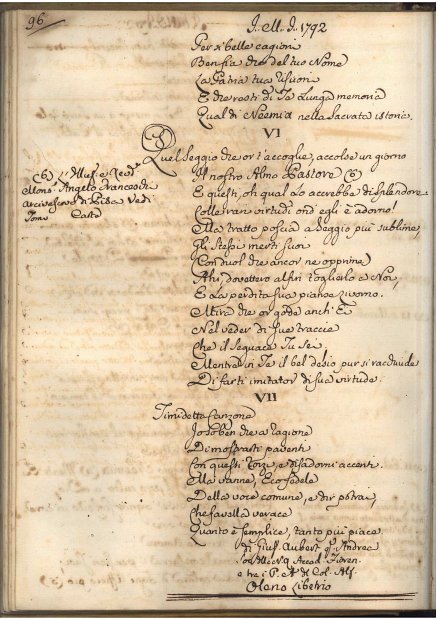 96
J. M. J. 1792
Per sì belle cagioni
Ben fia che del tuo Nome
La Patria tua risuoni
E che resti di Te lunga memoria
Qual di Neemia nella Sacrata istoria.
VI
Quel Seggio che or t'accoglie, accolse un giorno
Il nostro Almo Pastore (6)
E questi, oh qual lo accrebbe di splendore
Colle rari virtudi ond' egli è adorno!
(6) Illus. e Rev.
Mons. Angelo Franceschi
Arcivescovo di Pisa Vedi
Tomo Carte
Ma tratto poscia a Seggio più sublime,
Gli Stessi merti suoi
Con duol che ancor ne opprime
Ahi, dovettero alfin toglierlo a Noi,
E La perdita sua pianse Livorno.
Mira che or gode anch' Ei
Nel veder di sue traccie
Che il seguace Tu sei
Mentre in Te il bel desio pur si racchiude
Di farti imitator di sua virtude.
VII
Timidetta Canzone
Io so ben che a ragione
Di mostrarti paventi
Con questi rozzi, e disadorni accenti.
Ma vanne, Eco fedele
Della voce comune, e dir potrai,
Che favella verace
Quanto è Semplice, tanto più piace.
Di Gius. Aubert q. Andrea
Accad. Fioren.
e tre i P. A. di Col. Alf.
Olano Libetrio